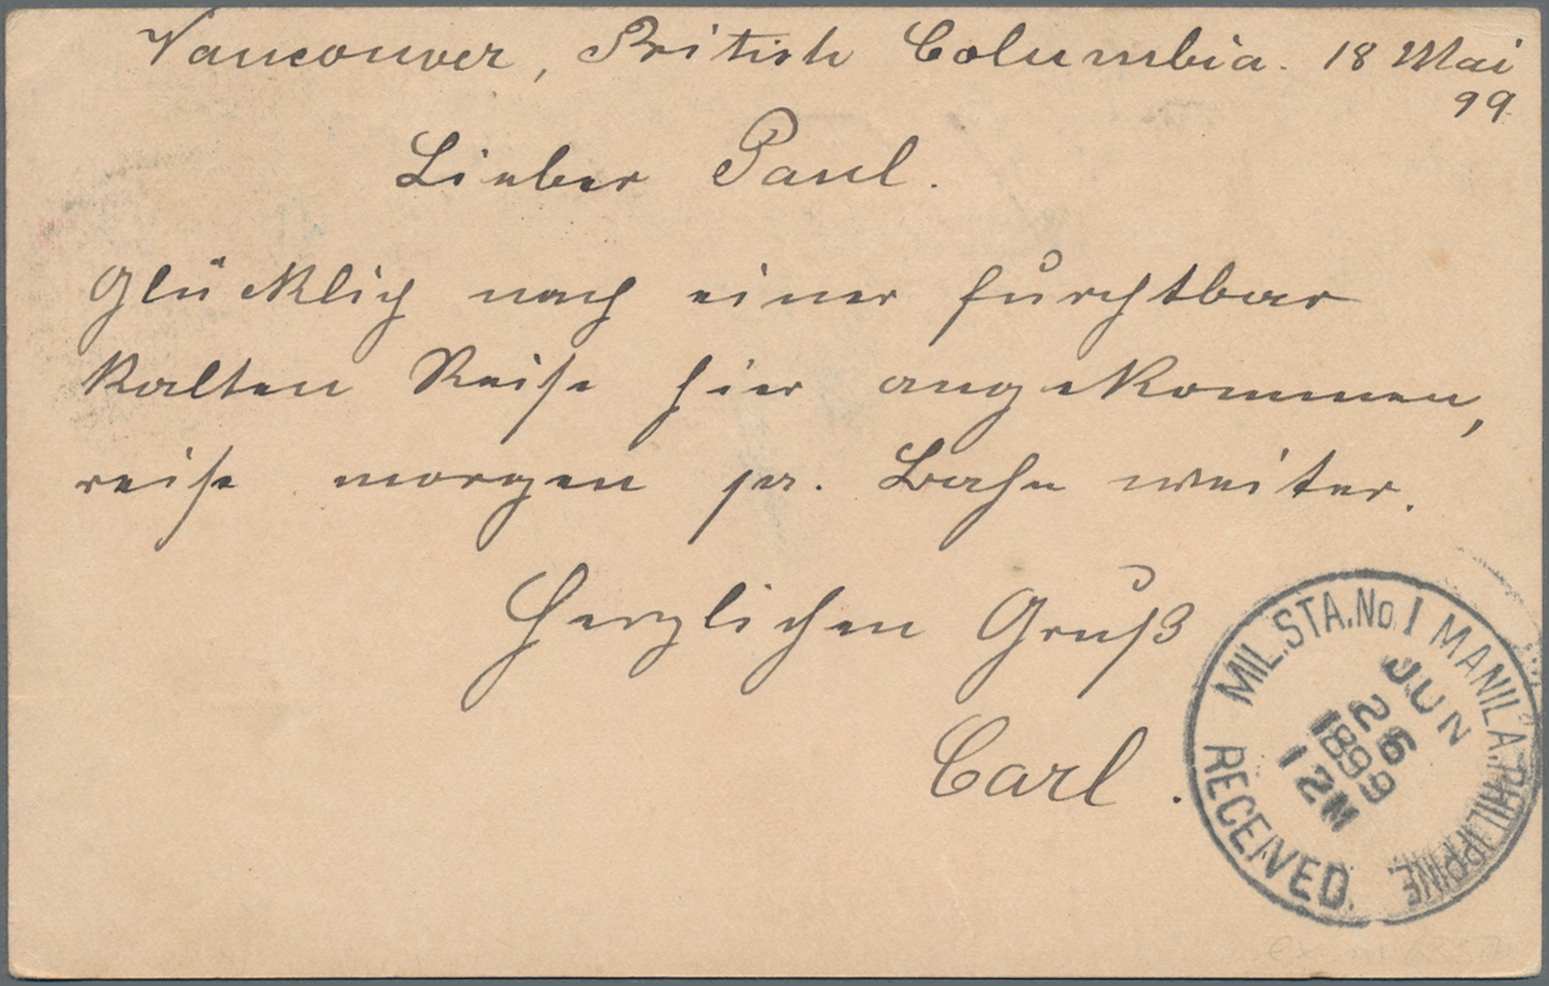 Vancouver, British Columbia. 18 Mai
99
Lieber Paul.
Glücklich nach einer furchtbar
kalten Reise hier angekommen,
reise morgen pr. Bahn weiter.
Herzlichen Gruß
Carl.
MIL. STA. No. 1 MANILA, PHILIPPINE.
JUN
26
1899
12 M
RECEIVED.